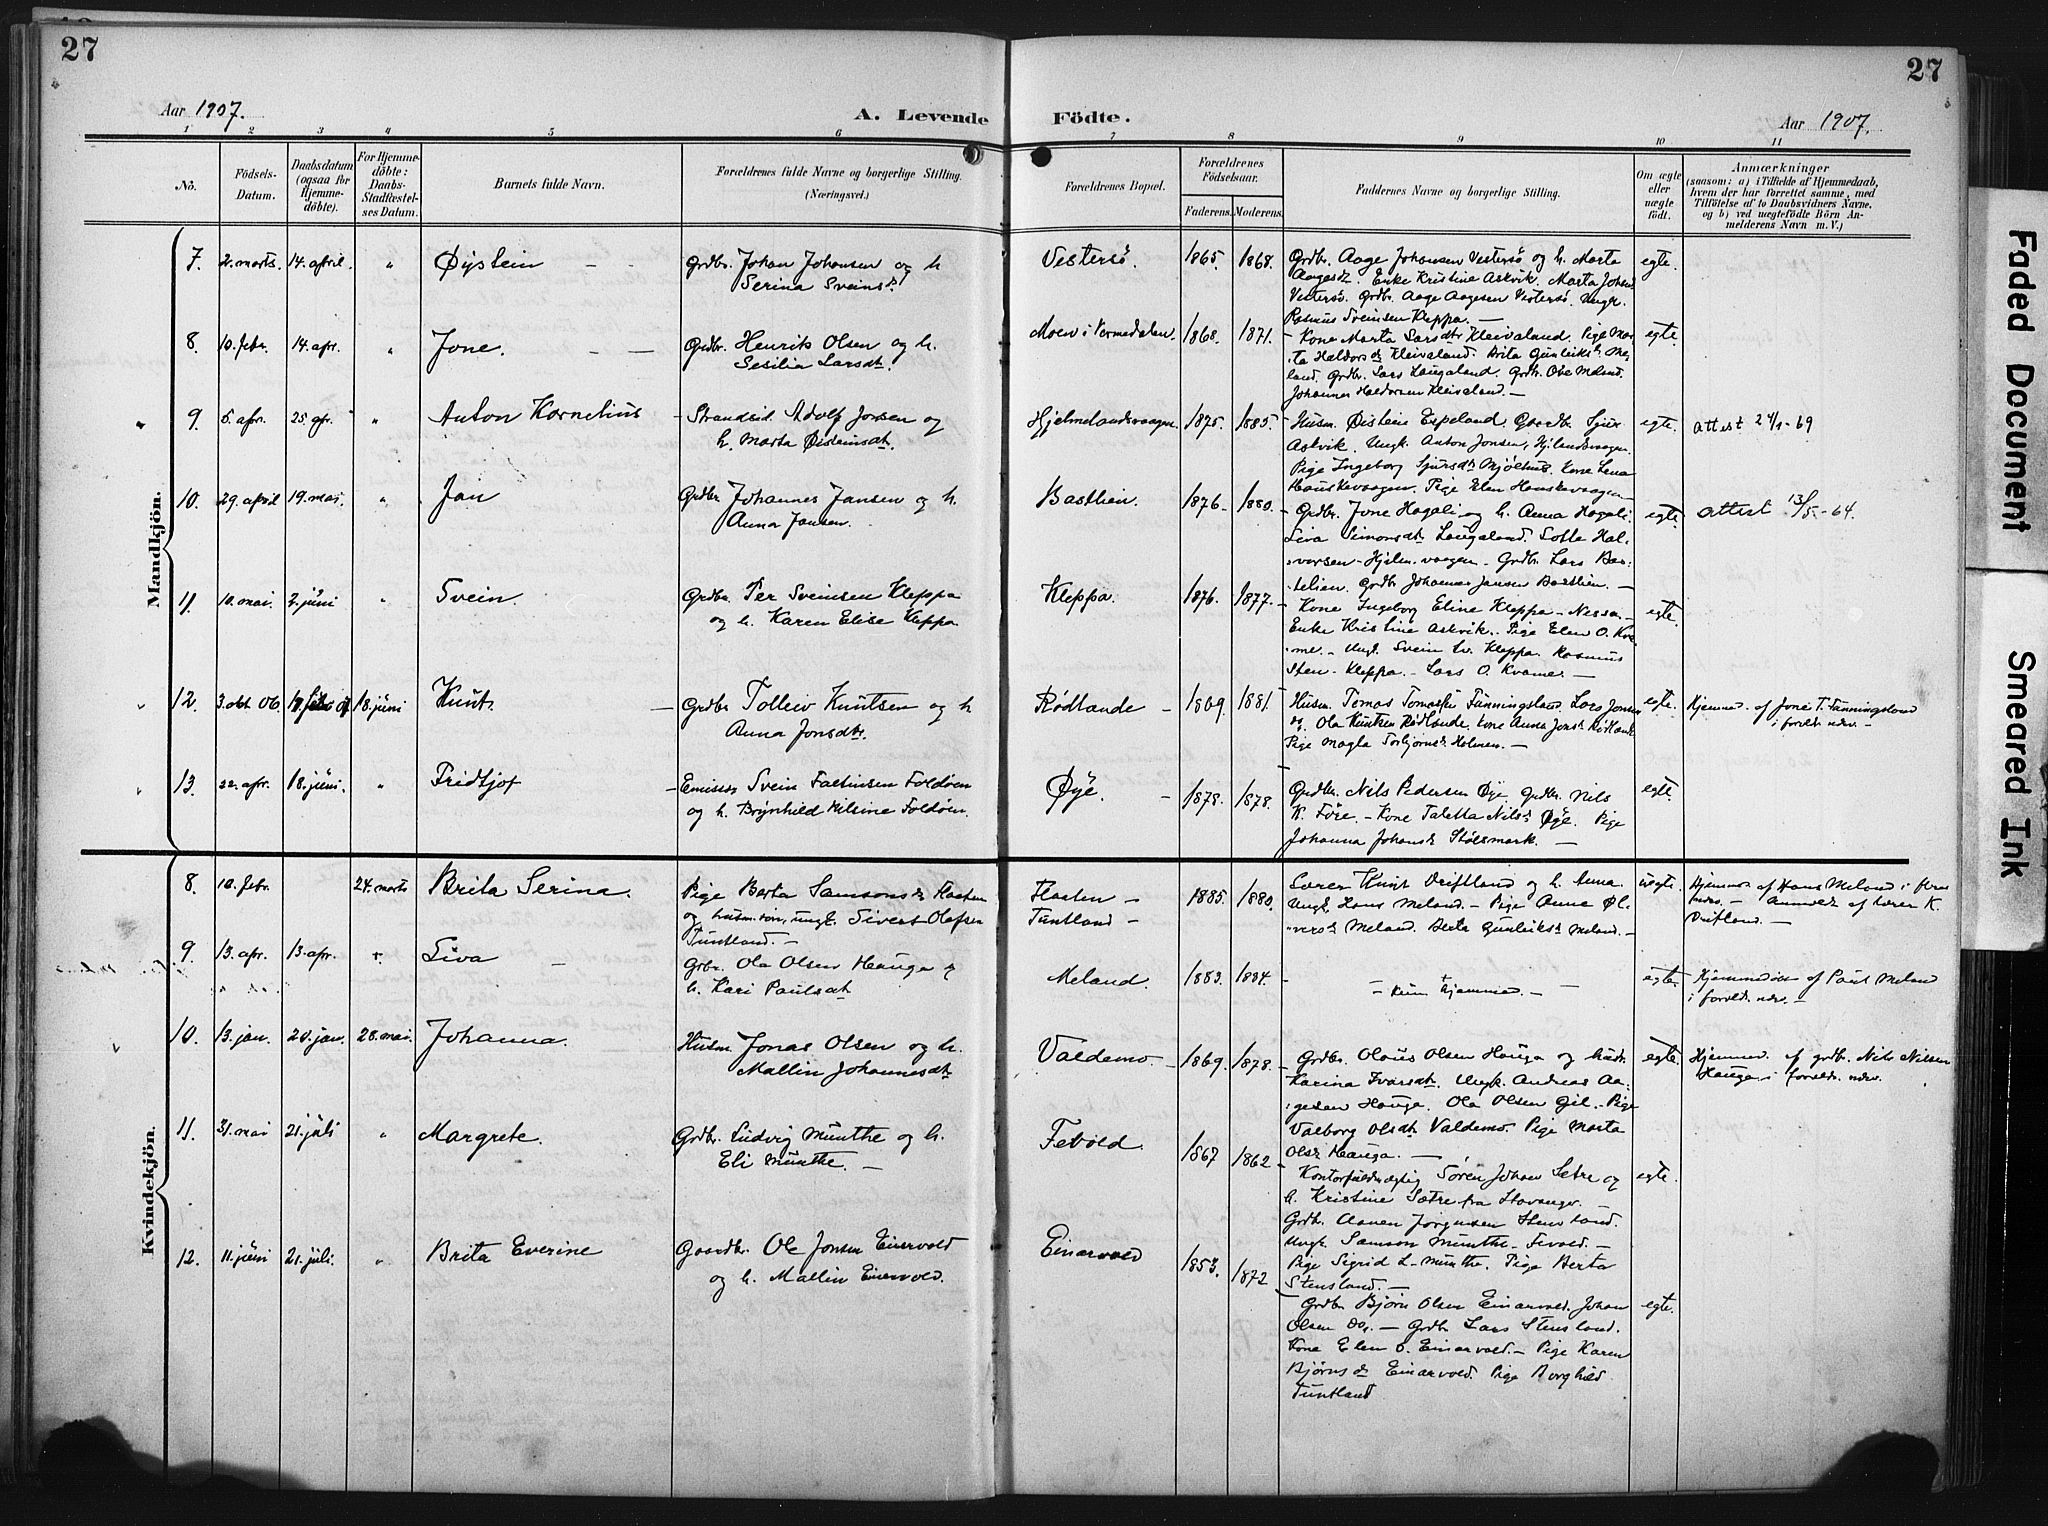 27
27
Aar 1907.
A. Levende Födte.
Aar 1907.
1 2 3 4 5 6 7 8 9 10 11
No.
Födsels-
Datum.
Daabsdatum
(ogsaa for
Hjemme-
döbte).
For Hjemme-
döbte:
Daabs-
Stadfæstel-
ses Datum.
Barnets fulde Navn.
Forældrenes fulde Navne og borgerlige Stilling.
(Næringsvei.)
Forældrenes Bopæl.
Forældrenes
Födselsaar.
Faderens. Moderens.
Faddernes Navne og borgerlige Stilling.
Om ægte
eller
uægte
födt.
Anmærkninger
(saasom: a) i Tilfælde af Hjemmedaab,
hvem der har forrettet samme, med
Tilföielse af to Daabsvidners Navne,
og b) ved uægtefödte Börn An-
melderens Navn m. V.)
Mandkjön.
7. 2. marts. 14. april. " Øystein
Grdbr. Johan Johansen og h.
Serina Sveinsd.
Vestersø. 1865. 1868.
Grdbr. Aage Johansen Vestersø og h. Marta
Aagesdt. Enke Kristine Askvik. Marta Johsd
Vestersø. Grdbr. Aage Aagesen Vestersø. Ungk.
Rasmus Sveinsen Kleppa.
egte.
8. 10. febr. 14. apr. " Jone.
Grdbr. Henrik Olsen og h.
Sesilia Larsdt.
Moen i Vormedalen. 1868. 1871.
Kone Marta Larsdt. Kleivaland. Pige Mar-
ta Haldorsd. Kleivaland. Brita Gunleiksd. Me-
land. Grdbr. Lars Laugaland. Grdbr. Ove Meland.
Johannes Haldorsen Kleivaland.
egte.
9. 5. apr. 25. apr. " Anton Kornelius
Strandsid. Adolf Jonsen og
h. Marta Øisteinsdt.
Hjelmelandsvaagen. 1875. 1885.
Husm. Øistein Espeland. Gaardbr. Sjur
Askvik. Ungk. Anton Jonsen, Hjelmlandsvaagen.
Pige Ingeborg Sjursdt. Mjølhus. Kone Lena
Hauskevaagen. Pige Elen Hauskevaagen
egte. Attest 24/1-69
10. 29. april 19. mai. " Jan
Grdbr Johannes Jansen og h.
Anna Jansen.
Bastlien. 1876. 1880.
Grdbr. Jone Hagali og h. Anna Hagali.
Siva Simonsdt. Laugaland. Lotta Hal-
vorsen - Hjelm.vaagen. Grdbr. Lars Bas-
telien. Grdbr Johannes Jansen Bastlien.
egte. Attest 13/5-64.
11. 10. mai. 2. juni " Svein.
Grdbr. Per Sveinsen Kleppa
og h. Karen Elise Kleppa
Kleppa. 1876. 1877.
Kone Ingeborg Eline Kleppa - Nessa.
Enke Kristine Askvik. Pige Elen O. Kva-
me. - Ungk. Svein Sv. Kleppa. Rasmus
Sten. Kleppa. - Lars O. Kvame.
egte.
12. 3. okt 06. 18. juni Knut.
Grdbr Tolleiv Knutsen og h
Anna Jonsdtr.
Rødlande 1869. 1881.
Husm. Tomas Tomassen Fanningsland, Lars Jonsen
og Ola Knutsen Rødlande, Kone Anna Jonsd. Rødlande
Pige Magla Torbjørnsd. Holmen.
egte. Hjemmed. af Jone T. Fanningsland
i foreld. nærv.
13. 22. apr. 18. juni. " Fridtjof
Emissær Svein Faltinsen Foldøen
og h. Brynhild Nilsine Foldøen.
Øye. 1878. 1878.
Grdbr. Nils Pedersen Øye. Grdbr. Nils
K. Føre. - Kone Taletta Nilsd. Øye. Pige
Johanna Johansd. Stølsmark.
egte.
Kvindekjön.
8. 10. febr. 24. marts Brita Serina.
Pige Berta Samsonsd. Flaaten
og husm.søn, ungk. Sivert Olafsen
Tuntland.
Flaaten
Tuntland 1885. 1880.
Lærer Knut Driftland og h. Anna.
Ungk. Hans Meland. - Pige Anna Øl-
versd. Meland. Berta Gunleiksd. Meland.
uegte. Hjemmed. af Hans Meland i flres
nærv. - Anmeldt af Lærer K.
Driftland.
9. 13. apr. 13. apr. " Siva
Grbr. Ola Olsen Hauga og
h. Kari Paulsdt.
Meland. 1883. 1884.
- Kun hjemmed. -
egte. Hjemmedøbt af Paul Meland
i foreld. nærv.
10. 13. jan. 20. jan. 28. mai. Johanna.
Husm. Jonas Olsen og h.
Mallin Johannesdt.
Valdemo 1869. 1878.
Grdbr. Olaus Olsen Hauga og hustr.
Karina Ivarsdt. Ungk. Andreas Aa-
gesen Hauga. Ola Olsen Gil. - Pige
Valborg Olsdt. Valdemo. Pige Marta
Olsd. Hauga.
egte. Hjemmed. af grdbr. Nils Nilsen
Hauga i foreldr. nærv.
11. 31. mai 21. juli " Margrete.
Grdbr. Ludvig Munthe og h.
Eli Munthe.
Fevold. 1867 1862
Kontorfuldmægtig Søren Johan Setre og
h. Kristine Sætre fra Stavanger.
Grdbr. Aanen Jørgensen Stensland.
Ungk. Samson Munthe - Fevold.
Pige Sigrid L. Munthe. Pige Berta
Stensland.
egte.
12. 11. juni 21. juli. " Brita Everine
Gaardbr. Ole Jonsen Einervold
og h. Mallin Einervold.
Einarvold 1853. 1872
Grdbr Bjørn Olsen Einarvold. Johan
Olsen do. - Grdbr Lars Stensland.
Kone Elen B. Einarvold. - Pige Karen
Bjørnsd. Einarvold. Pige Borghild
Tuntland
egte.
Faded Document
Smeared Ink